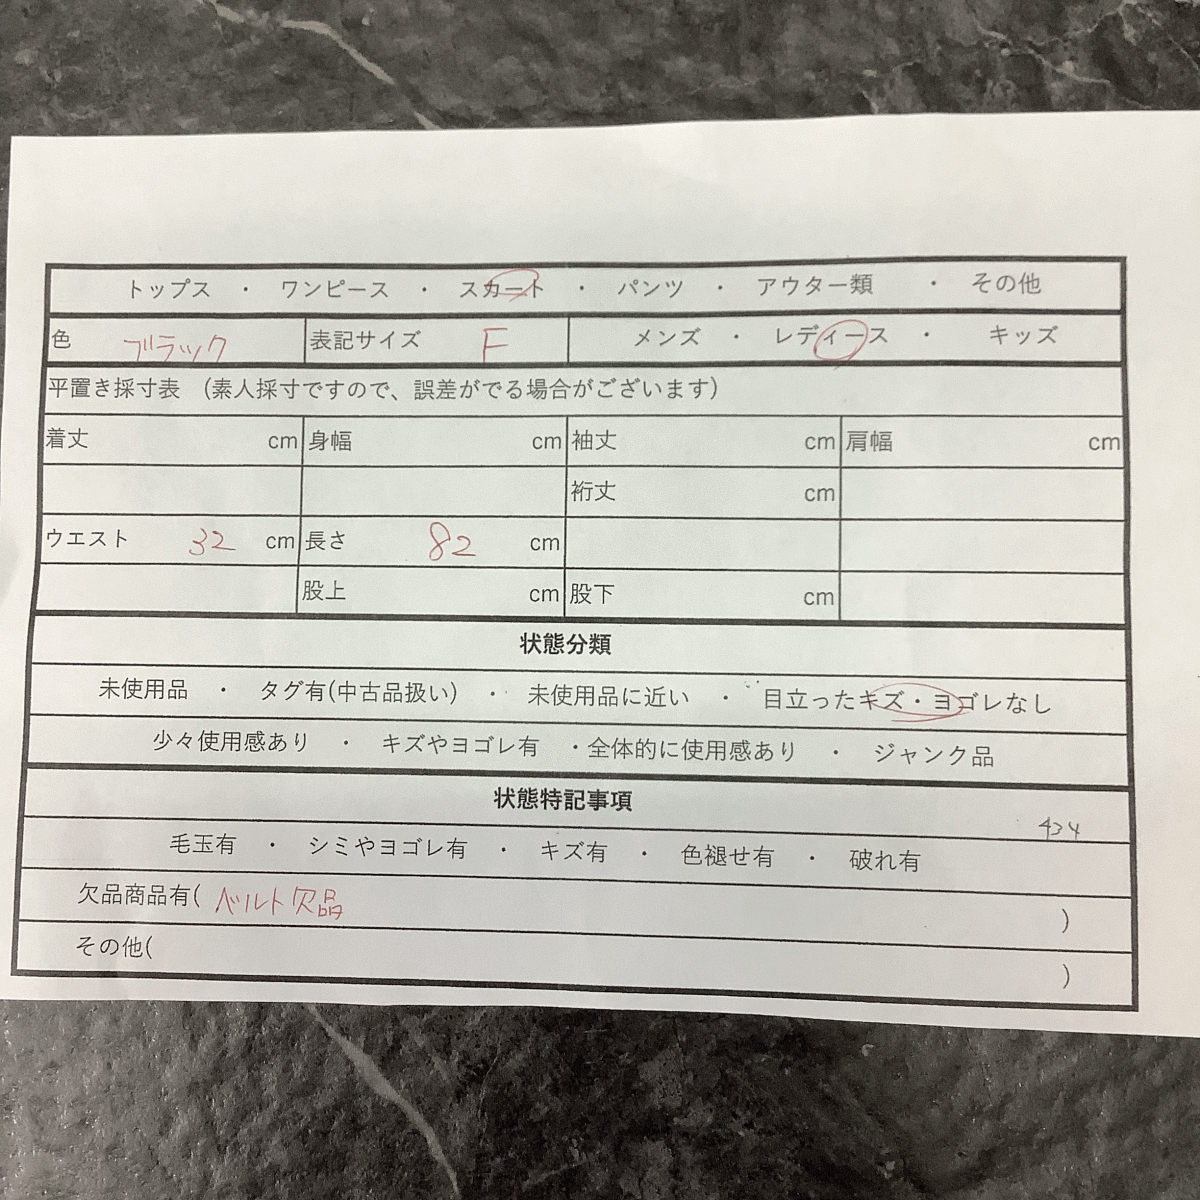 トップス ・ ワンピース ・ スカート ・ パンツ ・ アウター類 ・ その他
色 ブラック 表記サイズ F メンズ ・ レディース ・ キッズ
平置き採寸表 (素人採寸ですので、誤差がでる場合がございます)
着丈 cm 身幅 cm 袖丈 cm 肩幅 cm
裄丈 cm
ウエスト 32 cm 長さ 82 cm
股上 cm 股下 cm
状態分類
未使用品 ・ タグ有(中古品扱い) ・ 未使用品に近い ・ 目立ったキズ・ヨゴレなし
少々使用感あり ・ キズやヨゴレ有 ・全体的に使用感あり ・ ジャンク品
状態特記事項
434
毛玉有 ・ シミやヨゴレ有 ・ キズ有 ・ 色褪せ有 ・ 破れ有
欠品商品有( ベルト欠品 )
その他( )